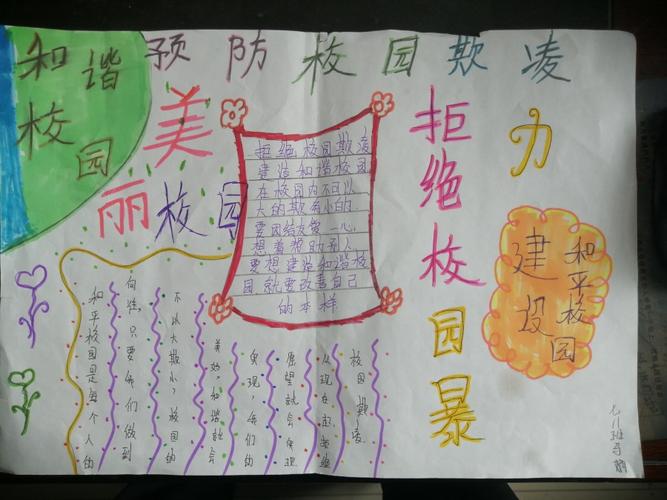 预防校园欺凌
和谐
校园
美
丽校园
拒绝校园欺凌
建造和谐校园
在校园内不可以
大的欺负小的
要团结友爱一心
想着帮助别人
要想建造和谐校
园就要改善自己
的本样
拒绝校园暴
力
建设
和平校园
和平校园是每个人的
向往,只要我们做到
不以大欺小,校园的
美好,和谐就会
实现,我们的
愿望就会实现
从现在起拒绝
校园欺凌